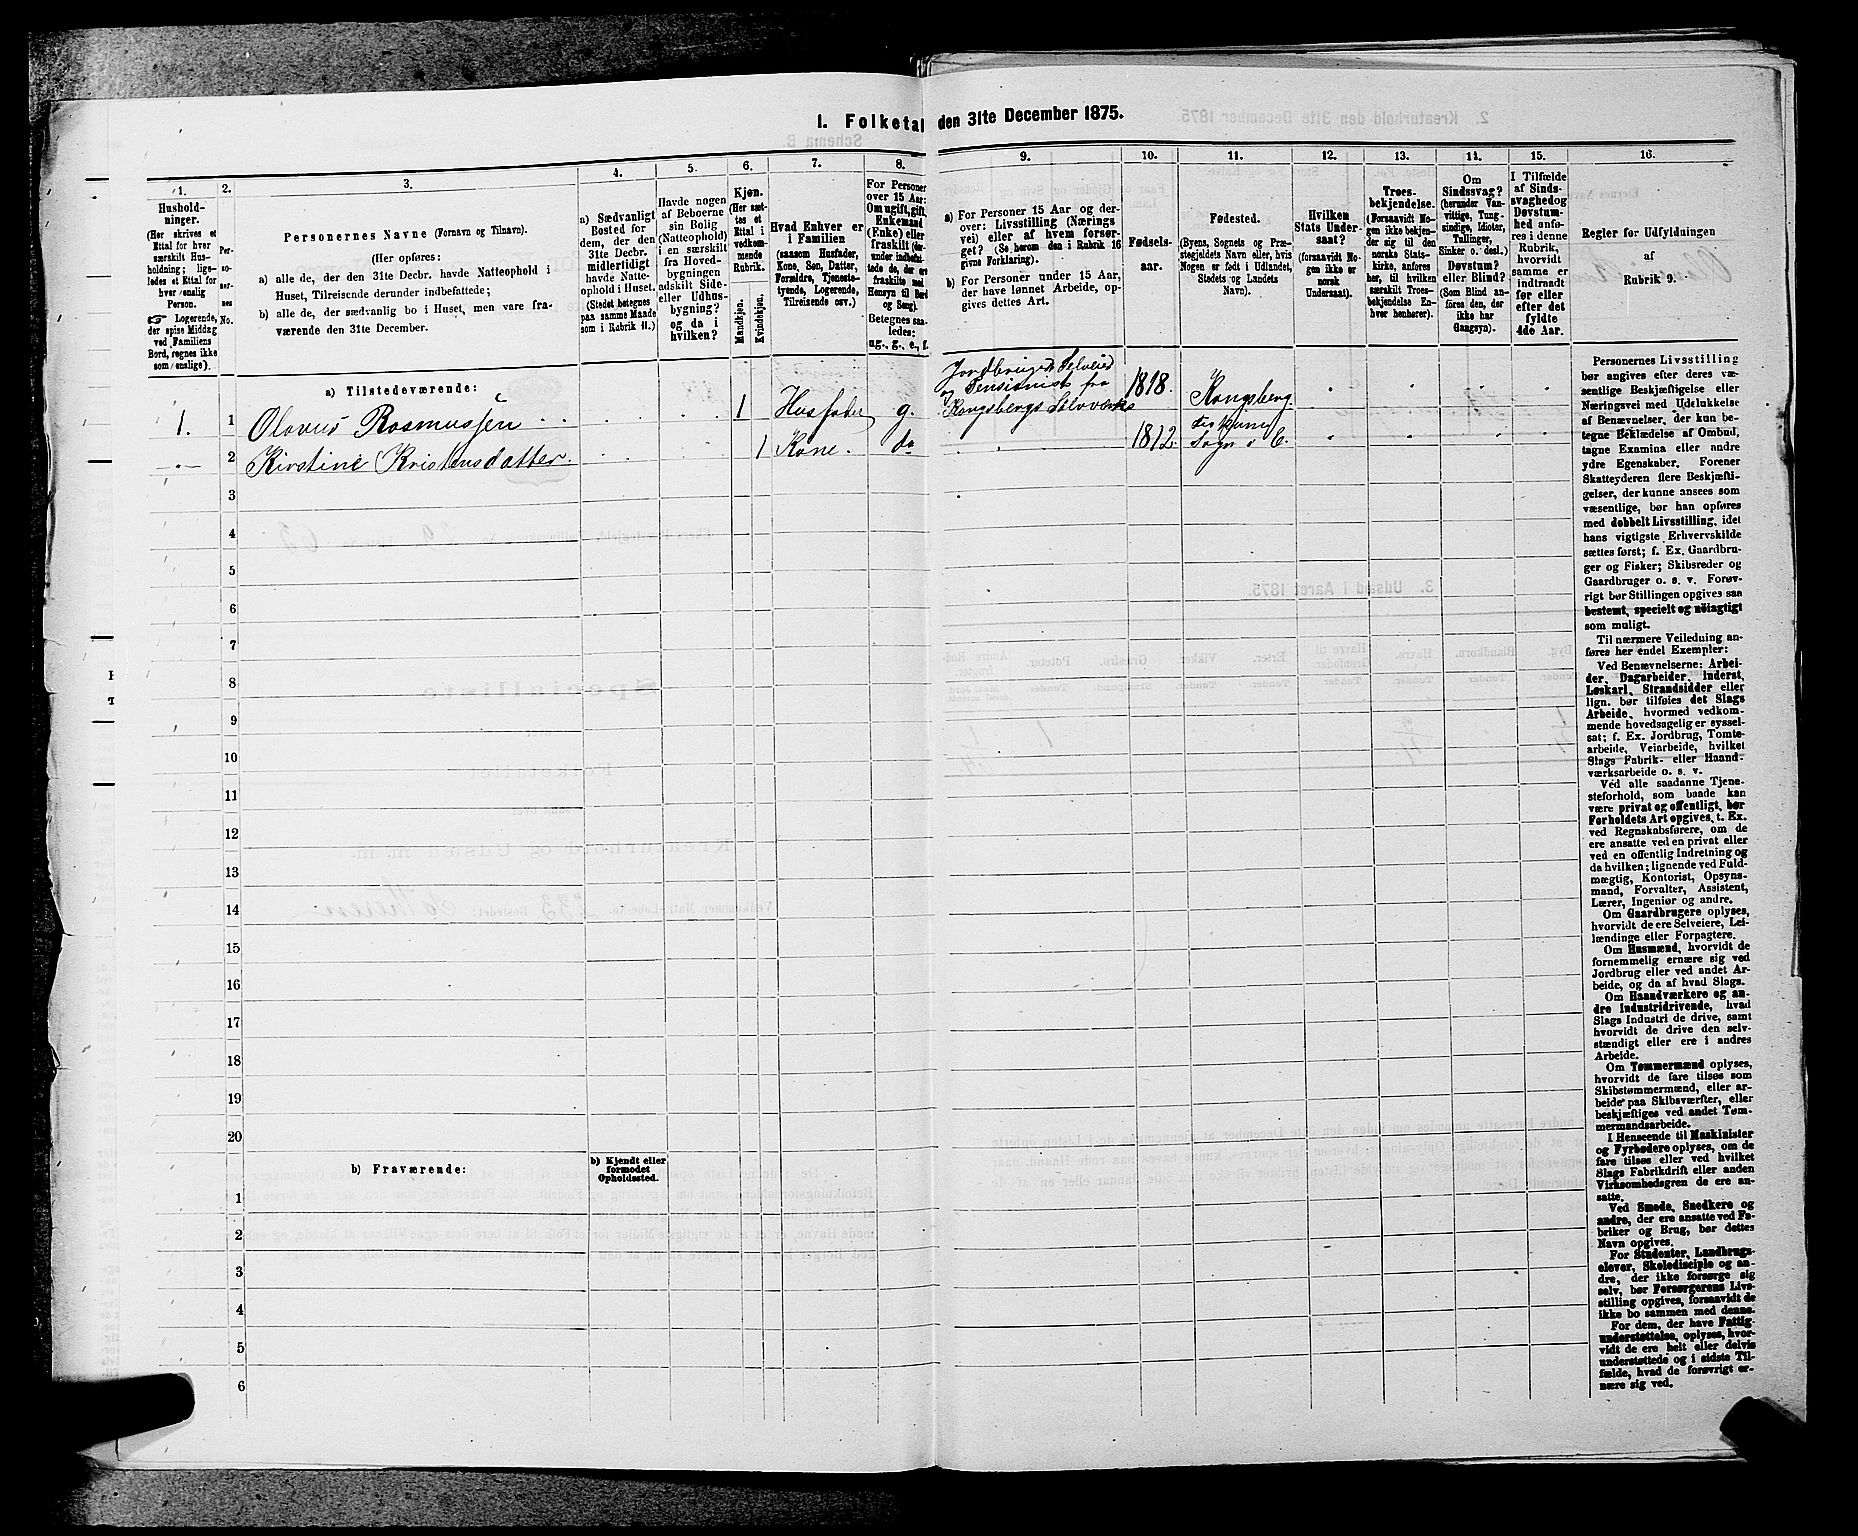 1. Folketal den 31te December 1875.
1.
Hushold-
ninger.
(Her skrives et
Ettal for hver
særskilt Hus-
holdning; lige-
ledes et Ettal for
hver enslig
Person.
Logerende,
der spise Middag
ved Familiens
Bord, regnes ikke
som enslige).
2.
Per-
so-
ner-
nes
No.
3.
Personernes Navne (Fornavn og Tilnavn).
(Her opføres:
a) alle de, der den 31te Decbr. havde Natteophold i
Huset, Tilreisende derunder indbefattede;
b) alle de, der sædvanlig bo i Huset, men vare fra-
værende den 31te December.
4.
a) Sædvanligt
Bosted for
dem, der den
31te Decbr.
midlertidigt
havde Natte-
ophold i Huset.
(Stedet betegnes
paa samme Maade
som i Rubrik 11.)
5.
Havde nogen
af Beboerne
sin Bolig
(Natteophold)
i en særskilt
fra Hoved-
bygningen
adskilt Side-
eller Udhus-
bygning?
og da i
hvilken?
6.
Kjøn.
(Her sæt-
tes et
Ettal i
vedkom-
mende
Rubrik.
Mandkjøn.
Kvindekjøn.
7.
Hvad Enhver er
i Familien
(saasom Husfader,
Kone, Søn, Datter,
Forældre, Tjeneste-
tyende, Logerende,
Tilreisende osv.)
8.
For Personer
over 15 Aar:
Om ugift, gift,
Enkemand
(Enke) eller
fraskilt (der-
under indbefat-
tede de, der ere
fraskilte med
Hensyn til Bord
og Seng).
Betegnes saa-
ledes:
ug., g., e., f.
9.
a) For Personer 15 Aar og der-
over: Livsstilling (Nærings
vei) eller af hvem forsør-
get? (Se herom den i Rubrik 16
givne Forklaring).
b) For Personer under 15 Aar,
der have lønnet Arbeide, op-
gives dettes Art.
10.
Fødsels-
aar.
11.
Fødested.
(Byens, Sognets og Præ-
stegjeldets Navn eller, hvis
Nogen er født i Udlandet,
Stedets og Landets
Navn).
12.
Hvilken
Stats Under-
saat?
(forsaavidt No-
gen ikke er
norsk
Undersaat).
13.
Troes-
bekjendelse.
(Forsaavidt No-
gen ikke bekjen-
der sig til den
norske Stats-
kirke, anføres
her, til hvilken
særskilt Troes-
bekjendelse En-
hver henhører).
14.
Om
Sindssvag?
(herunder Van-
vittige, Tung-
sindige, Idioter,
Tullinger,
Sinker o. desl.)
Døvstum?
eller Blind?
(Som Blind an-
føres den, der
ikke har
Gangsyn).
15.
I Tilfælde
af Sinds-
svaghed og
Døvstum-
hed anfø-
res i denne
Rubrik,
hvorvidt
samme er
indtraadt
før eller
efter det
fyldte
4de Aar.
16.
Regler for Udfyldningen
af
Rubrik 9.
a) Tilstedeværende:
1. 1 Olavus Rasmussen 1 Husfader g. Jordbruger Selveier og Pensionist fra Kongsbergs Sølvverks 1818. Kongsberg.
2 Kirstine Kristensdatter. 1 Kone. do 1812. Sogn i E.
3
4
5
6
7
8
9
10
11
12
13
14
15
16
17
18
19
20
b) Fraværende:
b) Kjendt eller
formodet
Opholdssted.
1
2
3
4
5
6
Personernes Livsstilling
bør angives efter deres væ-
sentlige Beskjæftigelse eller
Næringsvei med Udelukkelse
af Benævnelser, der kun be-
tegne Beklædelse af Ombud,
tagne Examina eller andre
ydre Egenskaber. Forener
Skatteyderen flere Beskjæfti-
gelser, der kunne ansees som
væsentlige, bør han opføres
med dobbelt Livsstilling, idet
hans vigtigste Erhvervskilde
sættes først; f. Ex. Gaardbru-
ger og Fisker; Skibsreder og
Gaardbruger o. s. v. Forøv-
rigt bør Stillingen opgives saa
bestemt, specielt og nöiagtigt
som muligt.
Til nærmere Veiledning an-
føres her endel Exempler:
Ved Benævnelserne: Arbei-
der, Dagarbeider, Inderst,
Løskarl, Strandsidder eller
lign. bør tilføies det Slags
Arbeide, hvormed vedkom-
mende hovedsagelig er syssel-
sat; f. Ex. Jordbrug, Tomte-
arbeide, Veiarbeide, hvilket
Slags Fabrik- eller Haand-
værksarbeide o. s. v.
Ved alle saadanne Tjene-
steforhold, som baade kan
være privat og offentligt, bør
Forholdets Art opgives, t. Ex.
ved Regnskabsførere, om de
ere ansatte ved en privat eller
ved en offentlig Indretning og
da hvilken; lignende ved Fuld-
mægtig, Kontorist, Opsyns-
mand, Forvalter, Assistent,
Lærer, Ingeniør og andre.
Om Gaardbrugere oplyses,
hvorvidt de ere Selveiere, Lei-
lændinge eller Forpagtere.
Om Husmænd, hvorvidt de
fornemmelig ernære sig ved
Jordbrug eller ved andet Ar-
beide, og da af hvad Slags.
Om Haandværkere og an-
dre Industridrivende, hvad
Slags Industri de drive, samt
hvorvidt de drive den selv-
stændigt eller ere i andres
Arbeide.
Om Tømmermænd oplyses,
hvorvidt de fare tilsøs som
Skibstømmermænd, eller ar-
beide paa Skibsværfter, eller
beskjæftiges ved andet Tøm-
mermandsarbeide.
I Henseende til Maskinister
og Fyrbødere oplyses, om de
fare tilsøs eller ved hvilket
Slags Fabrikdrift eller anden
Virksomhedsgren de ere an-
satte.
Ved Smede, Snedkere og
andre, der ere ansatte ved Fa-
briker og Brug, bør dettes
Navn opgives.
For Studenter, Landbrugs-
elever, Skoledisciple og an-
dre, der ikke forsørge sig
selv, bør Forsørgerens Livs-
stilling opgives, forsaavidt de
ikke bo sammen med denne.
For dem, der have Fattig-
understøttelse, oplyses, hvor-
vidt de ere helt eller delvis
understøttede og i sidste Til-
fælde, hvad de forøvrigt er-
nære sig ved.